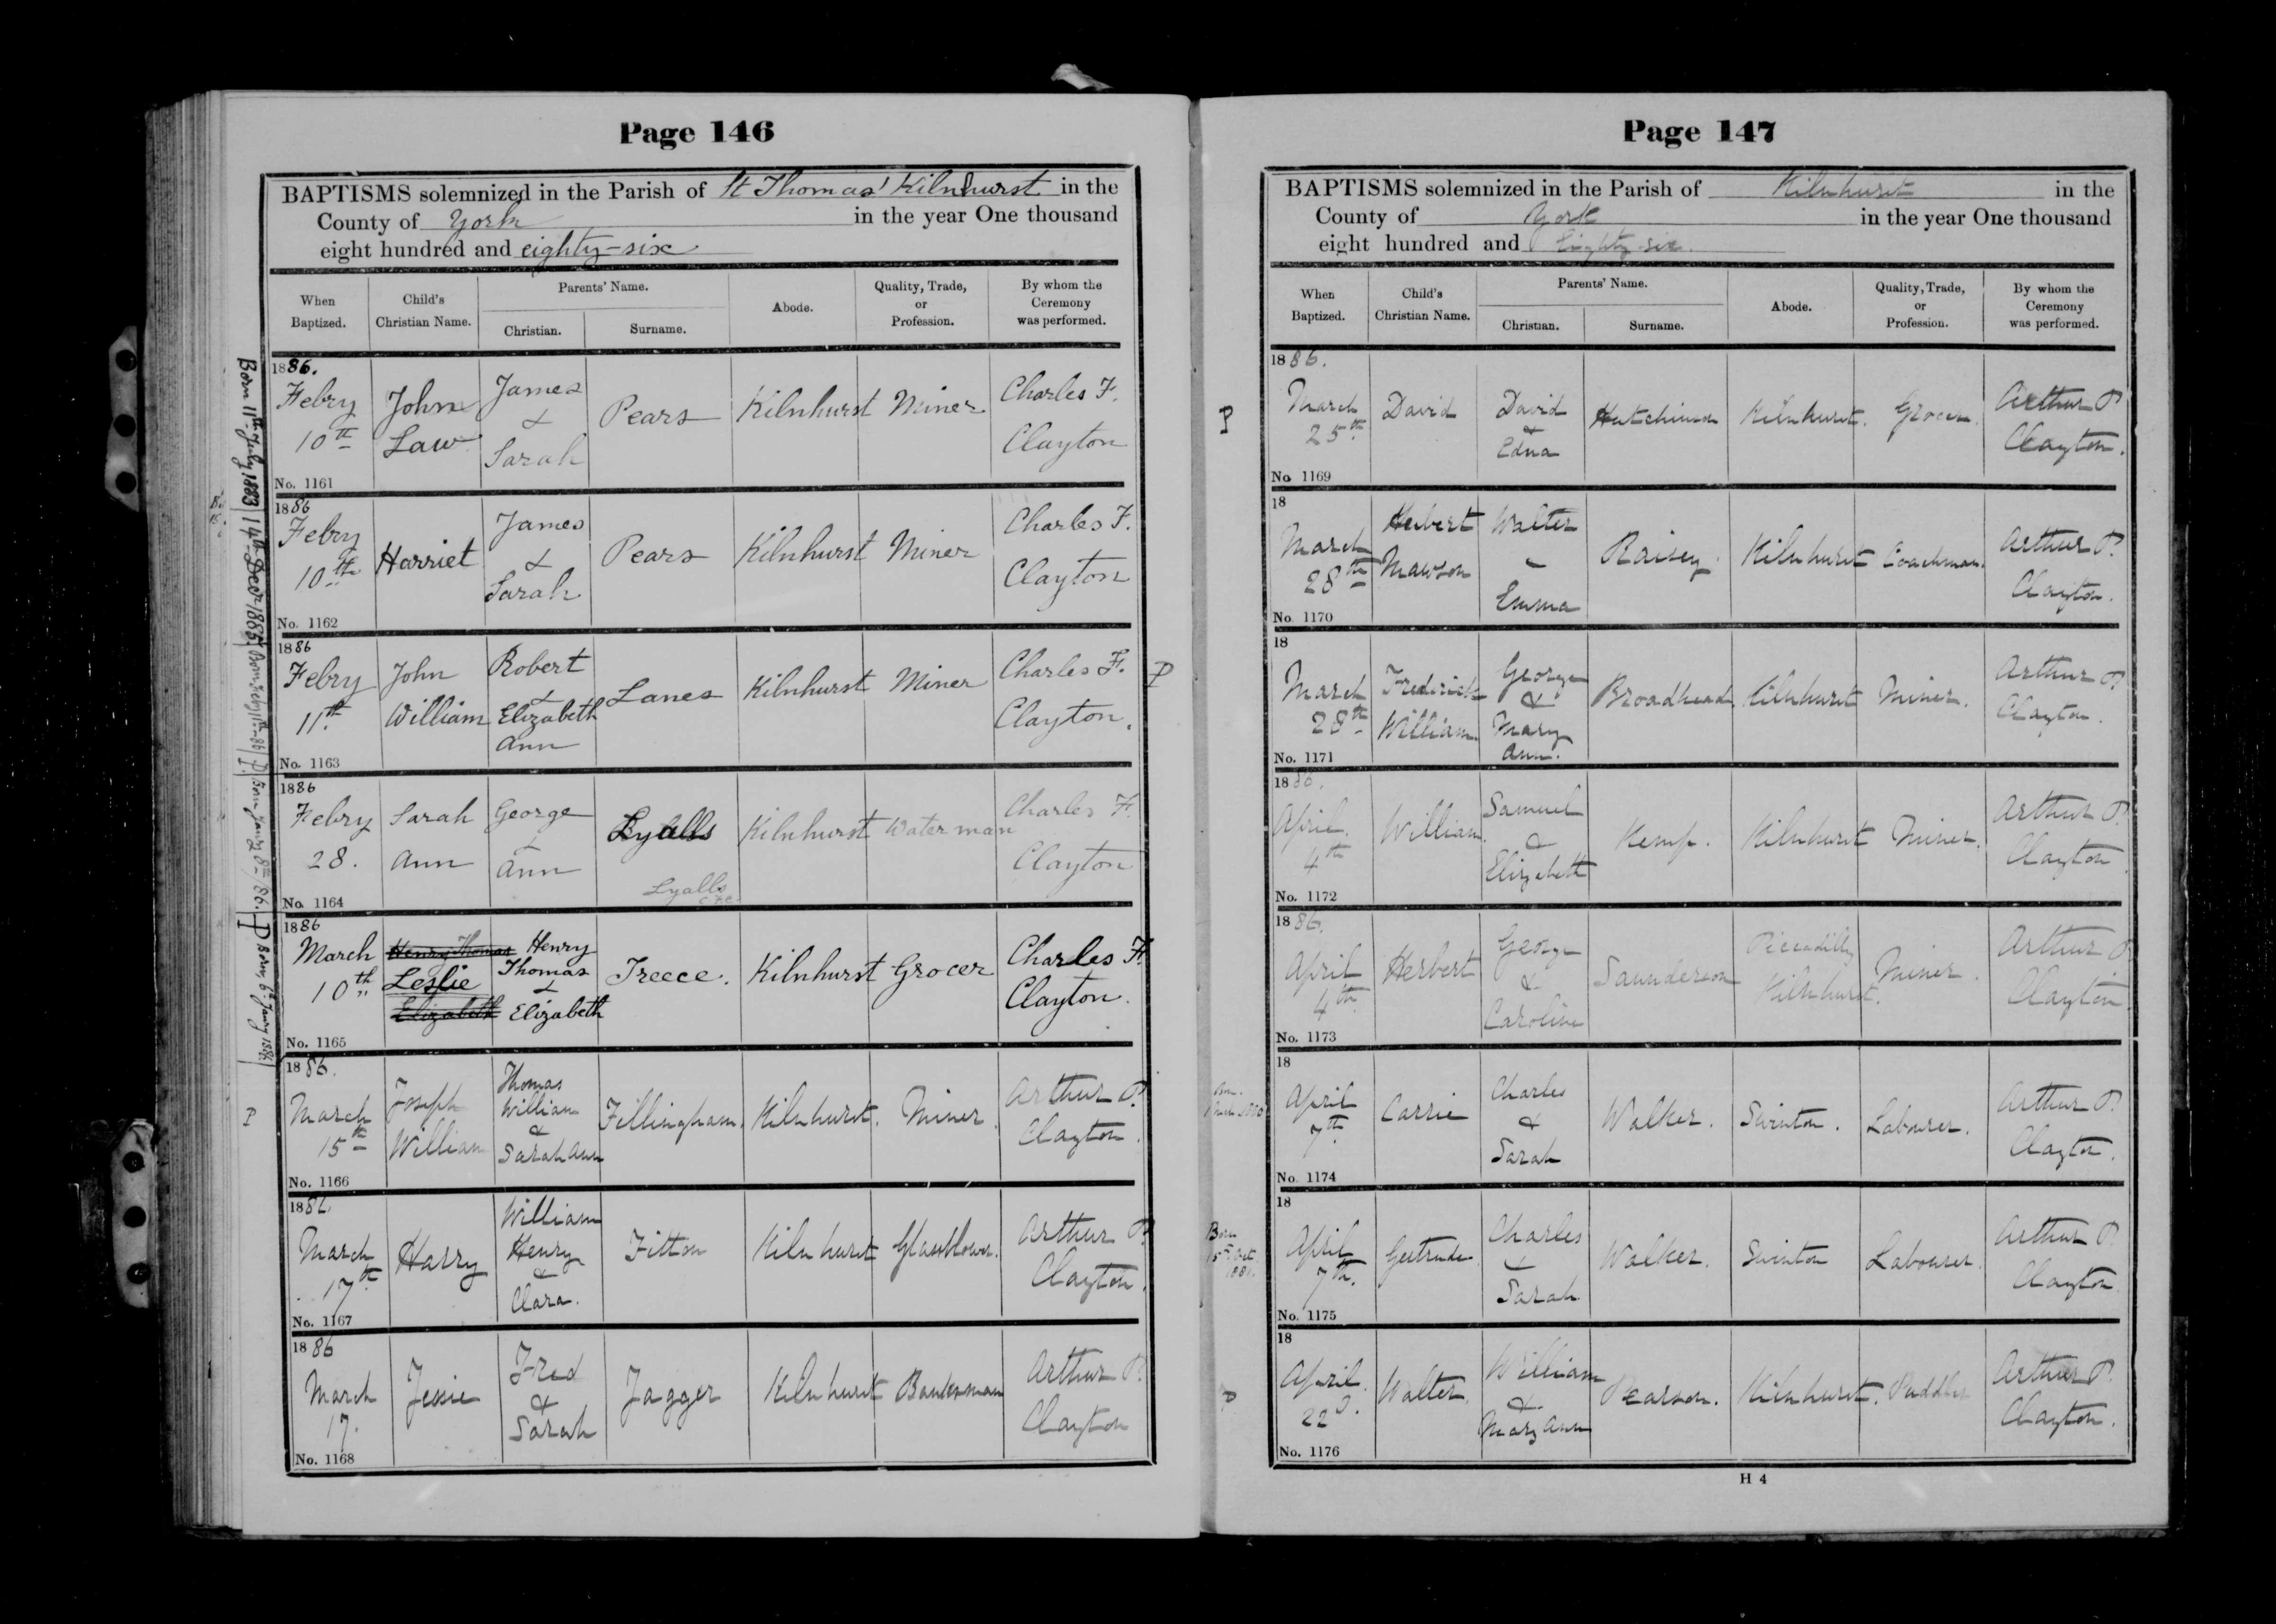 Page 146
BAPTISMS solemnized in the Parish of St Thomas' Kilnhurst in the
County of York in the year One thousand
eight hundred and eighty-six
When Baptized.
Child's Christian Name.
Parents' Name.
Christian.
Surname.
Abode.
Quality, Trade, or Profession.
By whom the Ceremony was performed.
Born 11th July 1883
14th Decr 1885
Born Feby 11th -86
P. Born Jany 8th /86.
P Born 6th Jany 1886
1886.
Febry 10th
John Law
James & Sarah
Pears
Kilnhurst
Miner
Charles F. Clayton
No. 1161
1886
Febry 10th
Harriet
James & Sarah
Pears
Kilnhurst
Miner
Charles F. Clayton
No. 1162
1886
Febry 11th
John William
Robert & Elizabeth Ann
Lanes
Kilnhurst
Miner
Charles F. Clayton.
No. 1163
1886
Febry 28.
Sarah Ann
George & Ann
Lyalls
Lyalls
Kilnhurst
Waterman
Charles F. Clayton
No. 1164
1886
March 10th
Henry Thomas
Leslie
Elizabeth
Henry Thomas & Elizabeth
Treece.
Kilnhurst
Grocer
Charles F. Clayton.
No. 1165
P
1886.
March 15th
Joseph William
Thomas William & Sarah Ann
Fillingham.
Kilnhurst.
Miner.
Arthur P. Clayton.
No. 1166
1886.
March 17th
Harry
William Henry & Clara.
Fitton
Kilnhurst
Glassblower.
Arthur P. Clayton.
No. 1167
1886
March 17.
Jessie
Fred & Sarah
Jagger
Kilnhurst
Banksman
Arthur P. Clayton
No. 1168
Page 147
BAPTISMS solemnized in the Parish of Kilnhurst in the
County of York in the year One thousand
eight hundred and Eighty-six.
When Baptized.
Child's Christian Name.
Parents' Name.
Christian.
Surname.
Abode.
Quality, Trade, or Profession.
By whom the Ceremony was performed.
P
1886.
March 25th.
David
David & Edna
Hutchinson
Kilnhurst.
Grocer.
Arthur P. Clayton.
No 1169
18
March 28th
Herbert Mawson
Walter & Emma
Raisey.
Kilnhurst
Coachman.
Arthur P. Clayton.
No 1170
P
18
March 28th
Frederick William.
George & Mary Ann.
Broadhead
Kilnhurst
Miner.
Arthur P. Clayton.
No. 1171
1886.
April. 4th
William.
Samuel & Elizabeth
Kemp.
Kilnhurst
Miner.
Arthur P. Clayton
No. 1172
1886.
April 4th
Herbert
George & Caroline
Saunderson
Piccadilly Kilnhurst.
Miner.
Arthur P. Clayton.
No. 1173
18
April 7th.
Carrie
Charles & Sarah
Walker.
Swinton.
Labourer.
Arthur P. Clayton.
No. 1174
Born 15th Oct. 1881.
18
April 7th.
Gertrude.
Charles & Sarah
Walker.
Swinton
Labourer.
Arthur P. Clayton
No. 1175
P
18
April. 22d.
Walter.
William & Mary Ann
Pearson.
Kilnhurst.
Puddler
Arthur P. Clayton.
No. 1176
H 4